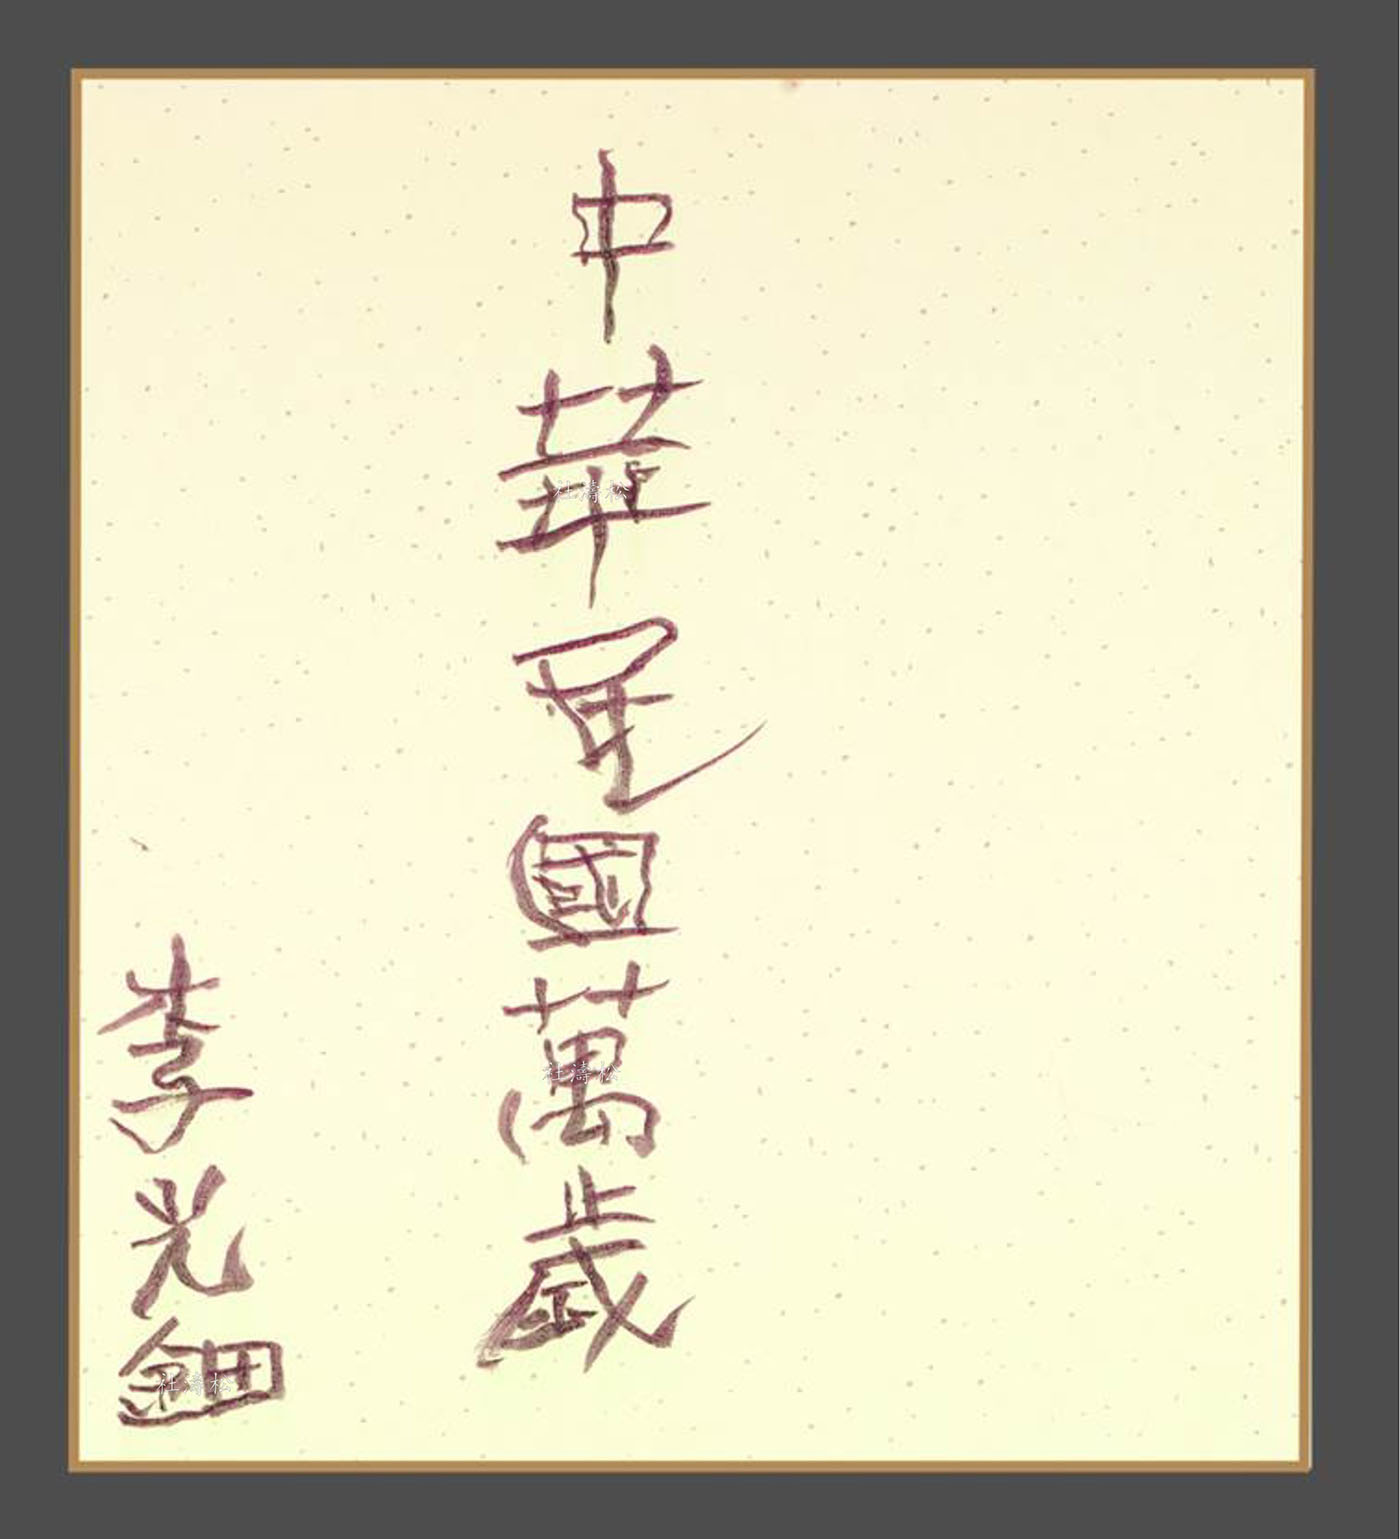 中華民國萬歲
李光鈿
杜濤松
杜濤松
杜濤松